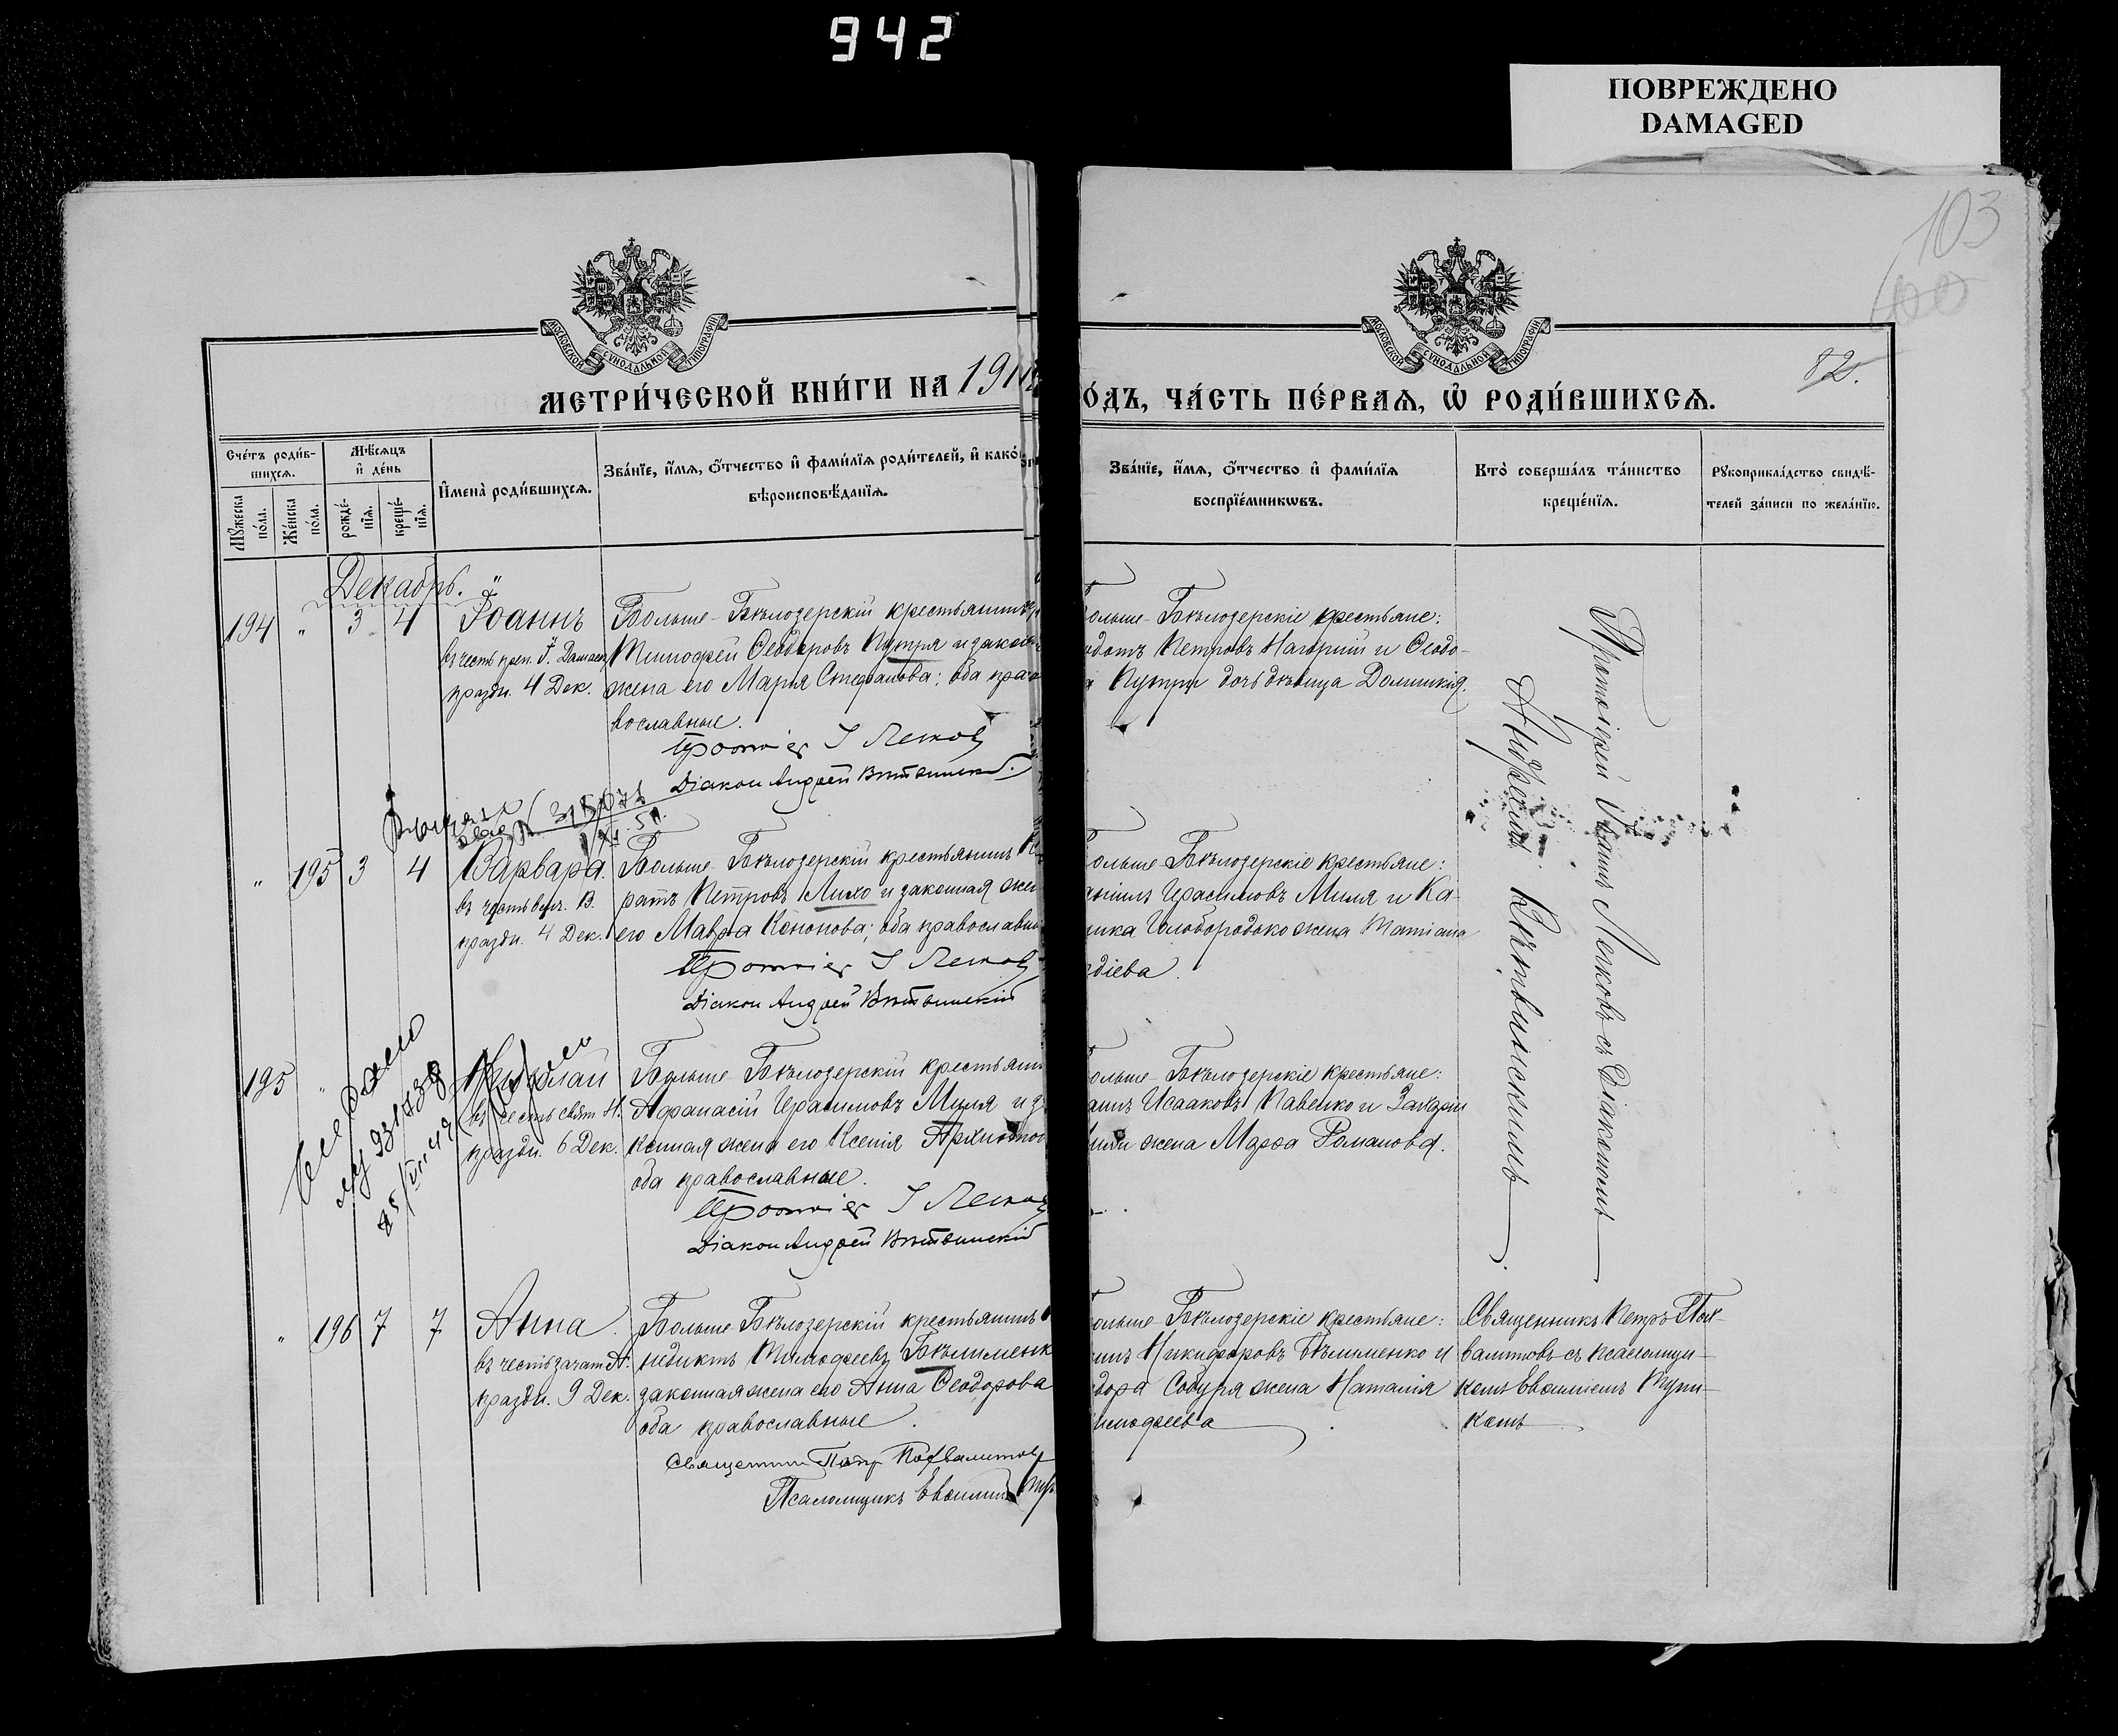 942
ПОВРЕЖДЕНО
DAMAGED
103
82.
МОСКОВСКОЙ СѴНОДАЛЬНОЙ ТИПОГРАФІИ
МОСКОВСКОЙ СѴНОДАЛЬНОЙ ТИПОГРАФІИ
МЕТРИ́ЧЕСКОЙ КНИ́ГИ НА 191
О́ДЪ, ЧА́СТЬ ПЕ́РВАѦ, Ѡ҆ РОДИ́ВШИХСѦ.
Сче́тъ роди́в-
шихсѧ.
Мѹ́жеска по́ла.
Же́нска по́ла.
Мѣ́сѧцъ
и҆ де́нь
рожде́-
нїѧ.
креще́-
нїѧ.
И҆мена̀ роди́вшихсѧ.
Зва́нїе, и҆́мѧ, ѻ҆́тчество и҆ фами́лїѧ роди́телей, и҆ како́
вѣроисповѣ́данїѧ.
Зва́нїе, и҆́мѧ, ѻ҆́тчество и҆ фами́лїѧ
воспрїе́мникѡвъ.
Кто̀ соверша́лъ та́инство
креще́нїѧ.
Рѹкоприкла́дство свидѣ́-
телей за́писи по жела́нїю.
Декабрь.
194 " 3 4 Іоаннъ
въ честь преп. І. Дамаск.
праздн. 4 Дек.
Больше-Бѣлозерскій крестьянинъ
Тимофей Ѳеодоровъ Путря и закон
жена его Марія Стефанова; оба пра
вославные.
Протоіер І Лесков
Діакон Андрей Вѣтвинскій.
ольше-Бѣлозерскіе крестьяне:
одотъ Петровъ Нагорний и Ѳеодо-
Путри дочь дѣвица Домникія.
Протоіерей Іоаннъ Лесковъ съ Діакономъ
Андреемъ Вѣтвинскимъ
" 195 3 4 Варвара.
въ честь влм. В.
праздн. 4 Дек.
Больше-Бѣлозерскій крестьянинъ
ратъ Петровъ Лихо и законная жен
его Мавра Кононова; оба православны
Протоіер І Лесков
Діакон Андрей Вѣтвинскій
ольше-Бѣлозерскіе крестьяне:
Герасимовъ Миля и Ка-
Голобородько жена Татіана
діева.
195 "
Николай
въ честь свят. Н.
праздн. 6 Дек.
Больше-Бѣлозерскій крестьянин
Афанасій Герасимовъ Миля и з
конная жена его Ксенія Архипов
оба православные.
Протоіер І Лесков
Діакон Андрей Вѣтвинскій
ольше-Бѣлозерскіе крестьяне:
Исааковъ Павенко и Захарія
жена Марѳа Романова.
" 196 7 7 Анна.
въ честь зачат. А.
праздн. 9 Дек.
Больше-Бѣлозерскій крестьянинъ
недиктъ Тимофеевъ Бѣлименк
законная жена его Анна Ѳеодорова
оба православные.
Священник Петр Похвалитов
Псаломщикъ Евѳимій
ольше-Бѣлозерскіе крестьяне:
Никифоровъ Бѣлименко и
дора Собуря жена Наталія
имофеева
Священникъ Петръ Пох-
валитовъ съ псаломщи-
комъ Евѳиміемъ